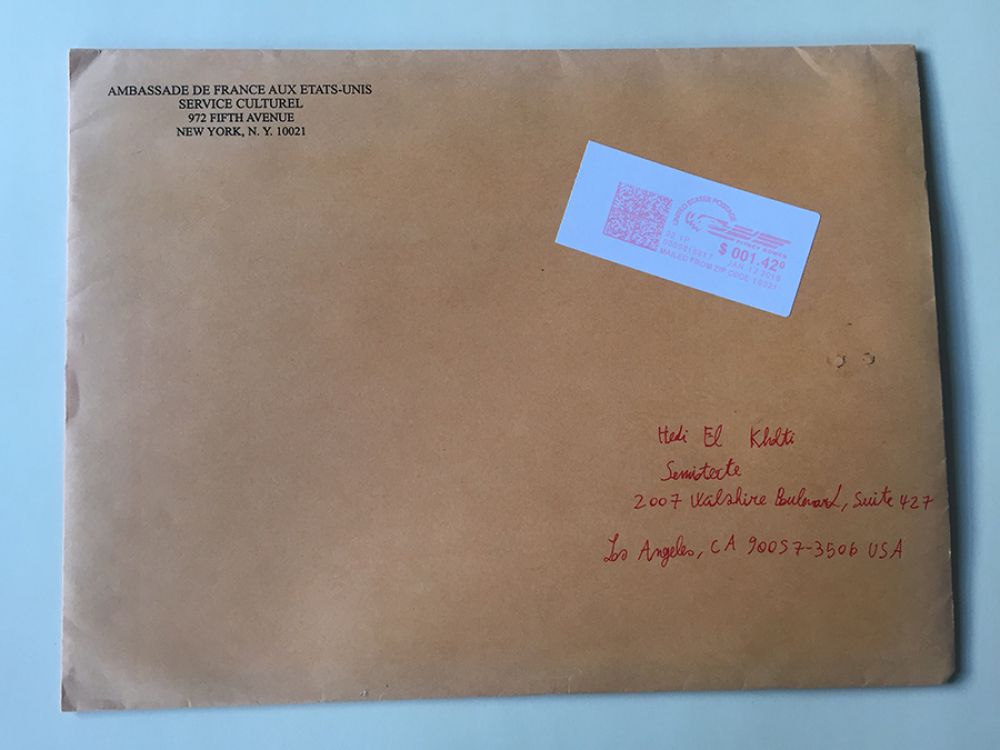 AMBASSADE DE FRANCE AUX ETATS-UNIS
SERVICE CULTUREL
972 FIFTH AVENUE
NEW YORK, N. Y. 10021
UNITED STATES POSTAGE
PITNEY BOWES
02 1P
$ 001.42⁰
JAN 12 2016
MAILED FROM ZIP CODE 10021
Hedi El Kholti
Semiotexte
2007 Wilshire Boulevard, Suite 427
Los Angeles, CA 90057-3506 USA